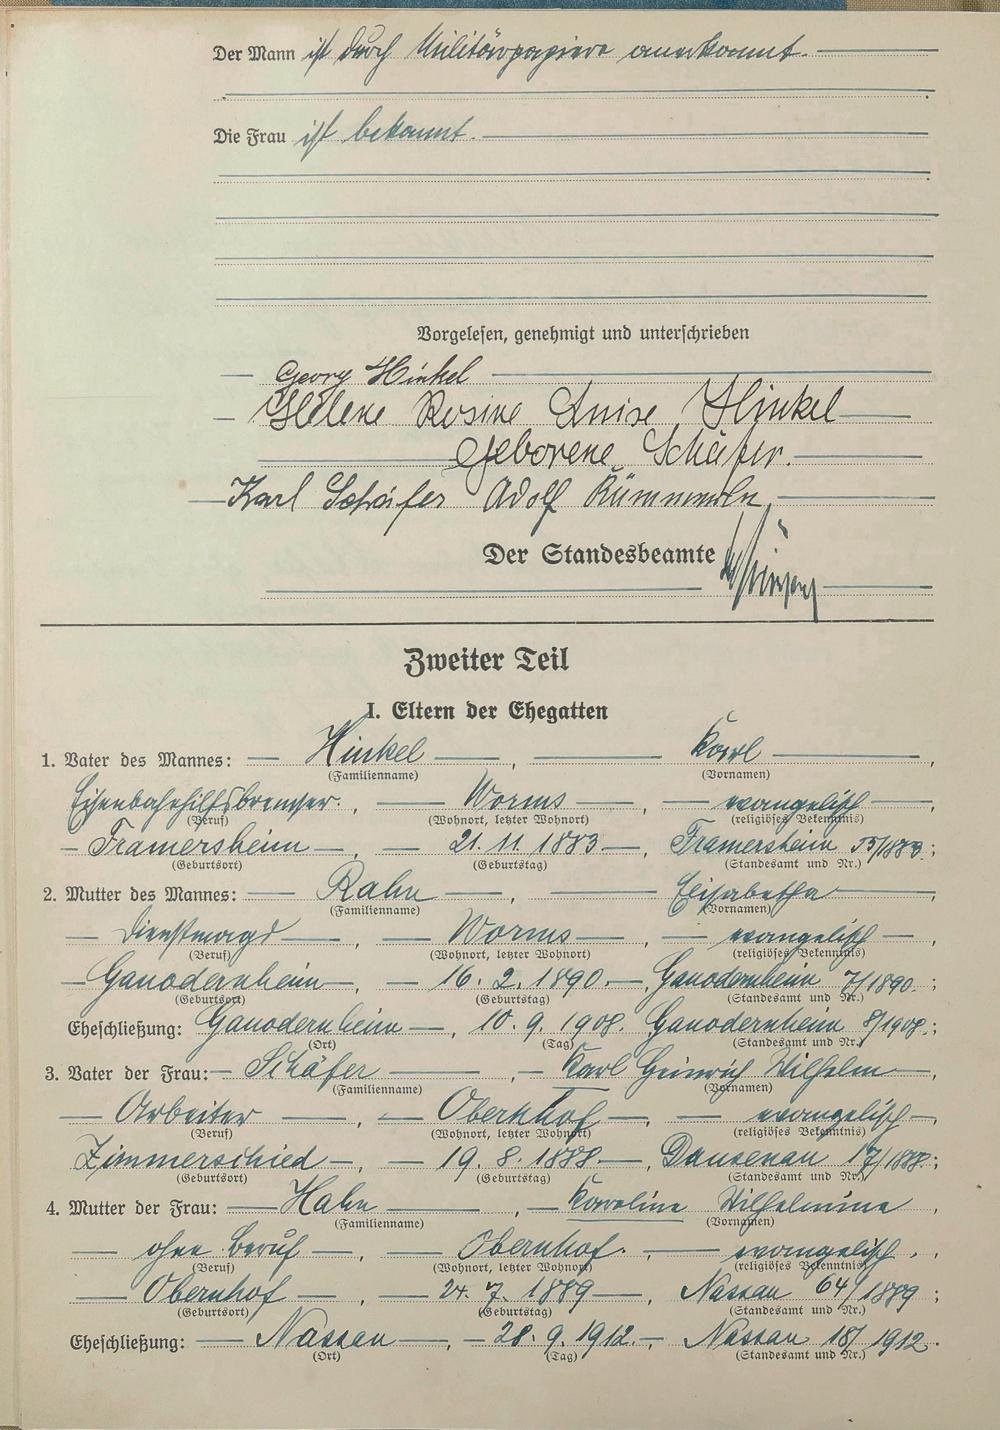 Der Mann ist durch Militärpapiere anerkannt.
Die Frau ist bekannt.
Vorgelesen, genehmigt und unterschrieben
Georg Hinkel
Helene Rosine Luise Hinkel
geborene Schäfer.
Karl Schäfer Adolf
Der Standesbeamte
Zweiter Teil
I. Eltern der Ehegatten
1. Vater des Mannes: Hinkel, Karl,
(Familienname) (Vornamen)
Eisenbahnhilfsbremser., Worms, evangelisch,
(Beruf) (Wohnort, letzter Wohnort) (religiöses Bekenntnis)
Framersheim, 21. 11. 1883, Framersheim 55/1883.;
(Geburtsort) (Geburtstag) (Standesamt und Nr.)
2. Mutter des Mannes: Rahn, Elisabetha,
(Familienname) (Vornamen)
Dienstmagd, Worms, evangelisch,
(Beruf) (Wohnort, letzter Wohnort) (religiöses Bekenntnis)
Ganodernheim, 16. 2. 1890., Ganodernheim 7/1890.;
(Geburtsort) (Geburtstag) (Standesamt und Nr.)
Eheschließung: Ganodernheim, 10. 9. 1908. Ganodernheim 8/1908.;
(Ort) (Tag) (Standesamt und Nr.)
3. Vater der Frau: Schäfer, Karl Heinrich Wilhelm,
(Familienname) (Vornamen)
Arbeiter, Obernhof, evangelisch,
(Beruf) (Wohnort, letzter Wohnort) (religiöses Bekenntnis)
Zimmerschied, 19. 8. 1888., Dausenau 17/1888.;
(Geburtsort) (Geburtstag) (Standesamt und Nr.)
4. Mutter der Frau: Hahn, Karoline Wilhelmine,
(Familienname) (Vornamen)
ohne Beruf, Obernhof., evangelisch,
(Beruf) (Wohnort, letzter Wohnort) (religiöses Bekenntnis)
Obernhof, 24. 7. 1889, Nassau 64/1889;
(Geburtsort) (Geburtstag) (Standesamt und Nr.)
Eheschließung: Nassau, 28. 9. 1912., Nassau 18/1912.
(Ort) (Tag) (Standesamt und Nr.)